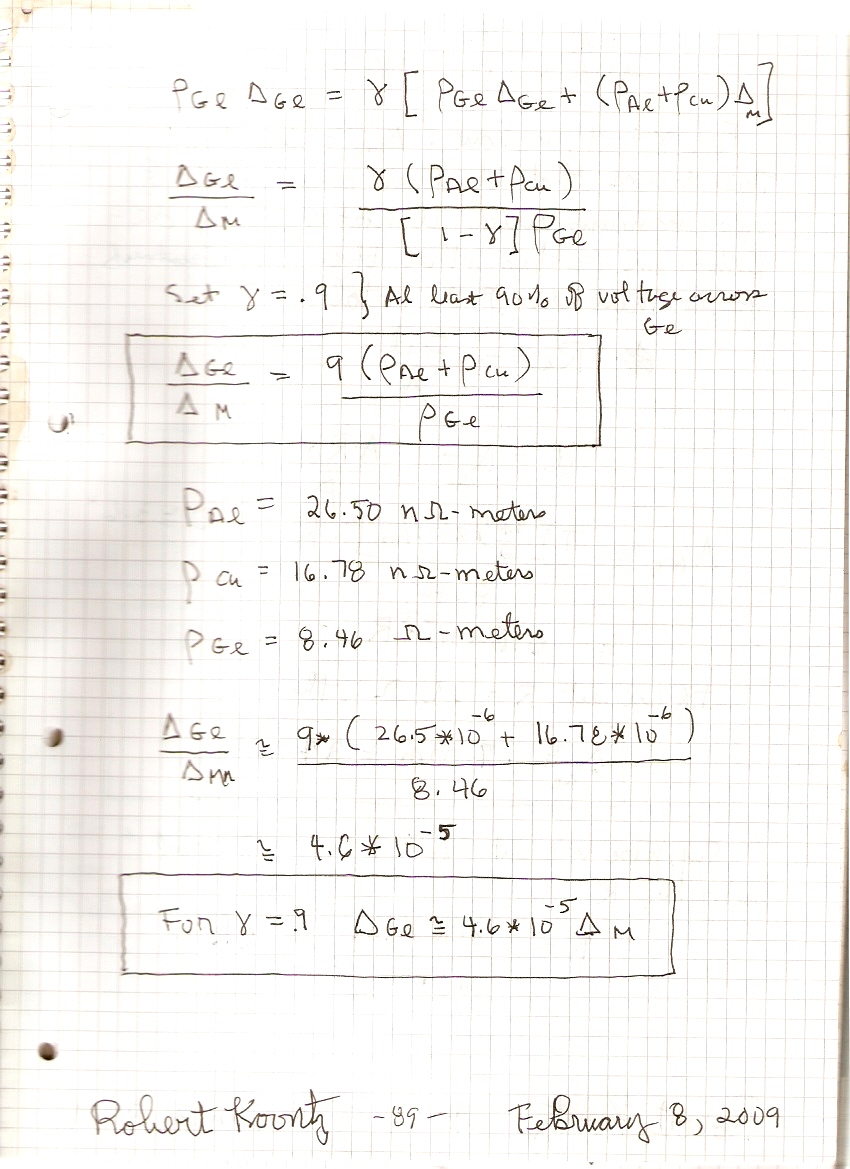 ρGe ΔGe = γ [ ρGe ΔGe + (ρAl + ρCu) ΔM ]
ΔGe / ΔM = γ (ρAl + ρCu) / [ 1 - γ ] ρGe
Set γ = .9 } At least 90% of voltage across
Ge
ΔGe / ΔM = 9 (ρAl + ρCu) / ρGe
ρAl = 26.50 nΩ-meters
ρCu = 16.78 nΩ-meters
ρGe = 8.46 Ω-meters
ΔGe / ΔM ≅ 9* ( 26.5*10^-6 + 16.78*10^-6 ) / 8.46
≅ 4.6*10^-5
For γ = .9 ΔGe ≅ 4.6*10^-5 ΔM
Robert Koontz -89- February 8, 2009